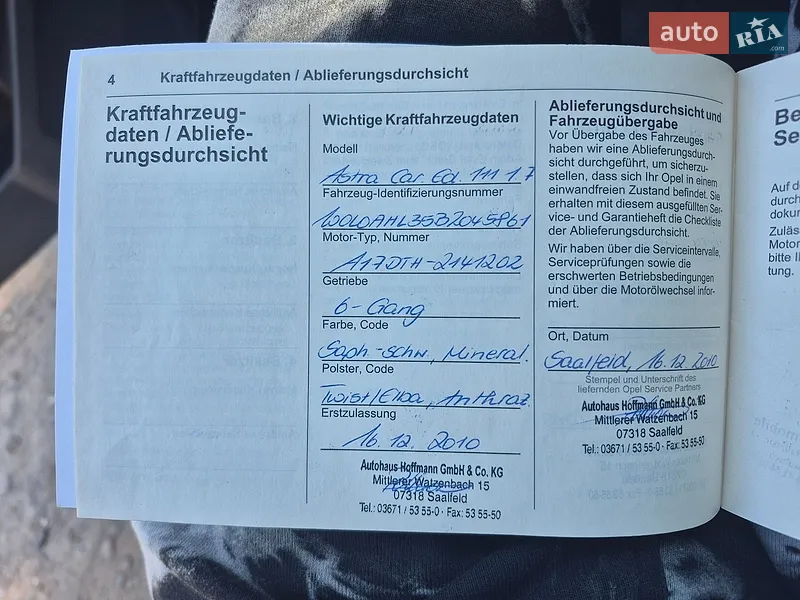 auto RIA.com
4 Kraftfahrzeugdaten / Ablieferungsdurchsicht
Kraftfahrzeug-
daten / Abliefe-
rungsdurchsicht
Wichtige Kraftfahrzeugdaten
Modell
Astra Car. Ed. 111 1.7
Fahrzeug-Identifizierungsnummer
W0L0AHL35B2045861
Motor-Typ, Nummer
A17DTH-2141202
Getriebe
6-Gang
Farbe, Code
Saph.-schw., Mineral.
Polster, Code
Twist/Elba, Anthraz.
Erstzulassung
16.12.2010
Autohaus Hoffmann GmbH & Co. KG
Mittlerer Watzenbach 15
07318 Saalfeld
Tel.: 03671 / 53 55-0 · Fax: 53 55-50
Ablieferungsdurchsicht und
Fahrzeugübergabe
Vor Übergabe des Fahrzeuges
haben wir eine Ablieferungsdurch-
sicht durchgeführt, um sicherzu-
stellen, dass sich Ihr Opel in einem
einwandfreien Zustand befindet. Sie
erhalten mit diesem ausgefüllten Ser-
vice- und Garantieheft die Checkliste
der Ablieferungsdurchsicht.
Wir haben über die Serviceintervalle,
Serviceprüfungen sowie die
erschwerten Betriebsbedingungen
und über die Motorölwechsel infor-
miert.
Ort, Datum
Saalfeld, 16.12.2010
Stempel und Unterschrift des
liefernden Opel Service Partners
Autohaus Hoffmann GmbH & Co. KG
Mittlerer Watzenbach 15
07318 Saalfeld
Tel.: 03671 / 53 55-0 · Fax: 53 55-50
Be
Se
Auf d
durch
dokur
Zuläs
Motor
bitte I
tung.